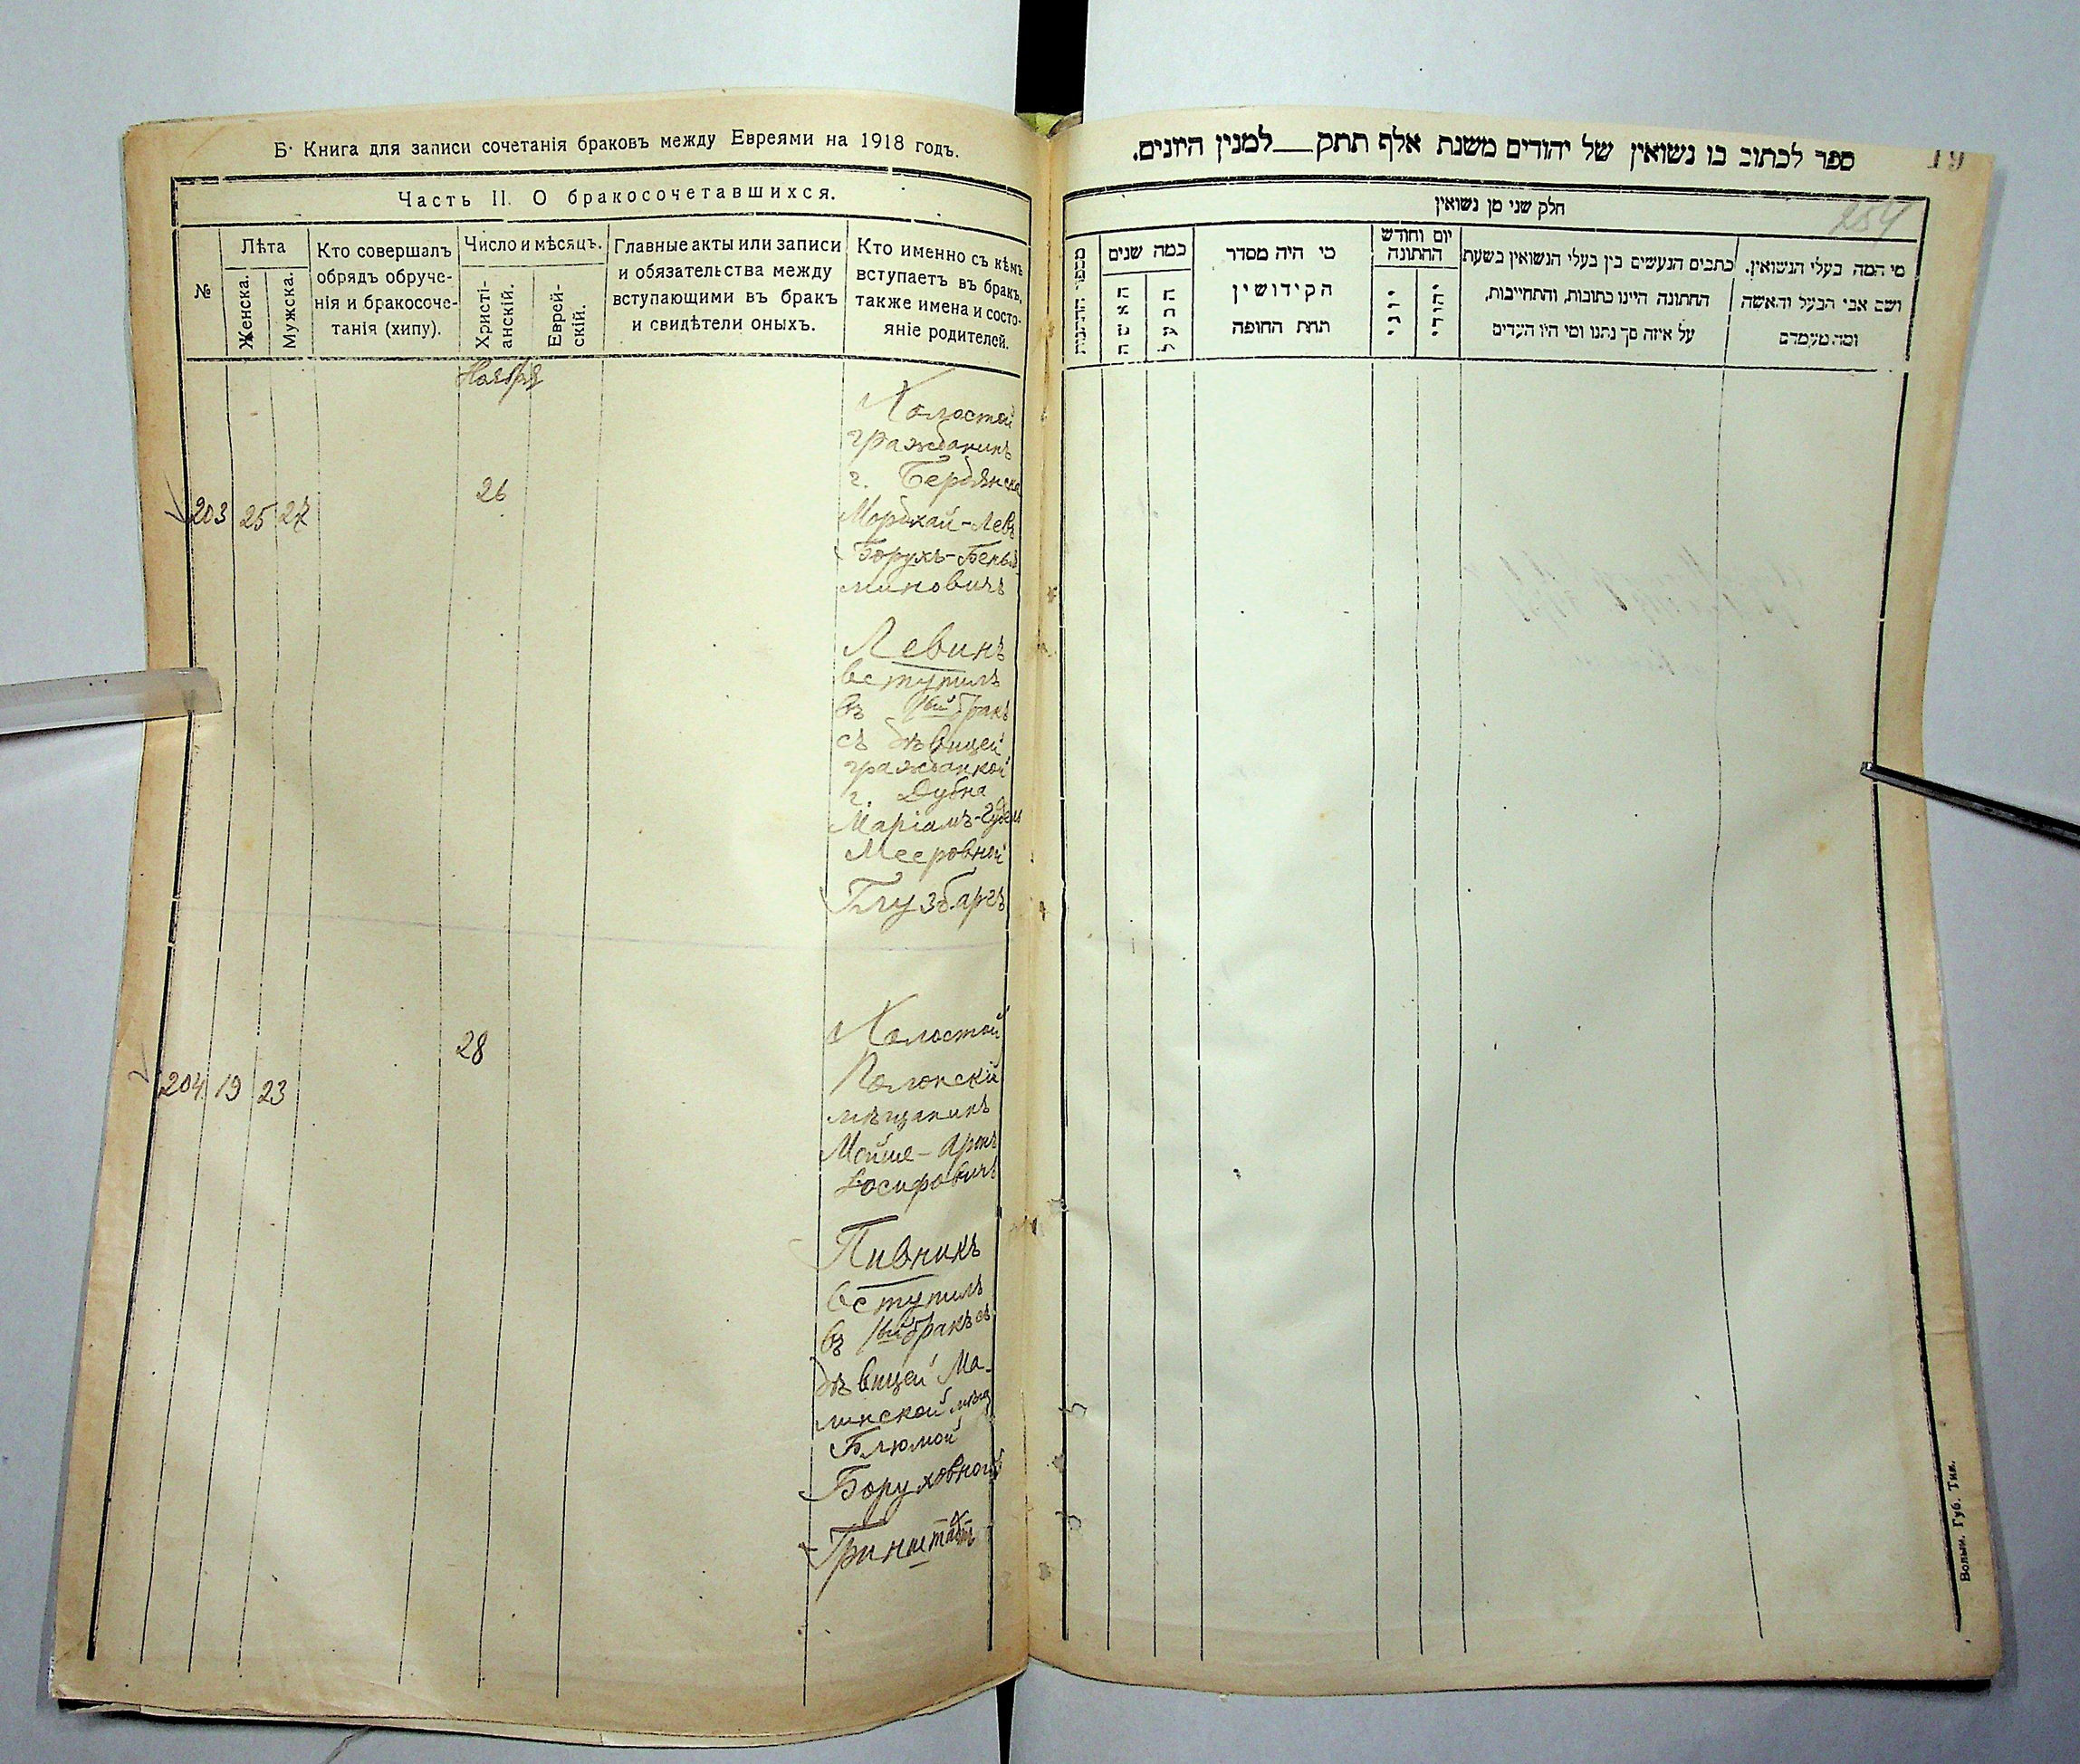 Б. Книга для записи сочетанія браковъ между Евреями на 1918 годъ.
Часть II. О бракосочетавшихся.
№
Лѣта
Женска.
Мужска.
Кто совершалъ
обрядъ обруче-
нія и бракосоче-
танія (хипу).
Число и мѣсяцъ.
Христі-
анскій.
Еврей-
скій.
Главные акты или записи
и обязательства между
вступающими въ бракъ
и свидѣтели оныхъ.
Кто именно съ кѣмъ
вступаетъ въ бракъ,
также имена и состо-
яніе родителей.
Ноября
203 25 27
26
Холостой
гражданинъ
г. Бердянска
Мордхай-Лейб
Борухъ-Бенья
миновичъ
Левинъ
вступилъ
въ 1ый бракъ
съ дѣвицей
гражданкой
г. Дубна
Маріамъ-
Мееровной
Глузбаргъ
204 19 23
28
Холостой
Полонскій
мѣщанинъ
Мойше-Аронъ
Іосифовичъ
Пивникъ
вступилъ
въ 1ый бракъ съ
дѣвицей Ма-
линской мѣщ
Блюмой
Боруховной
Гринштатъ
ספר לכתוב בו נשואין של יהודים משנת אלף תתק__למנין היונים.
19
254
חלק שני מן נשואין
מספר החתונות
כמה שנים
האשה
הבעל
מי היה מסדר
הקידושין
תחת החופה
יום וחודש
החתונה
יוני
יהודי
כתבים הנעשים בין בעלי הנשואין בשעת
החתונה היינו כתובות, והתחייבות,
על איזה סך נתנו ומי היו העדים
מי המה בעלי הנשואין.
ושם אבי הבעל והאשה
ומה מעמדם
Волын. Губ. Тип.